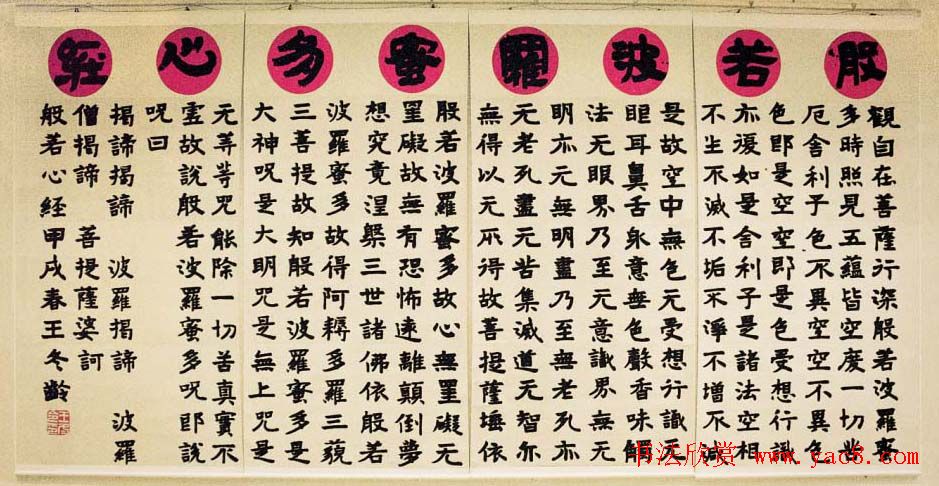 般若波羅蜜多心經
觀自在菩薩行深般若波羅蜜
多時照見五蘊皆空度一切苦
厄舍利子色不異空空不異色
色即是空空即是色受想行識
亦復如是舍利子是諸法空相
不生不滅不垢不淨不增不減
是故空中無色无受想行識无
眼耳鼻舌身意無色聲香味觸
法无眼界乃至无意識界無无
明亦无無明盡乃至無老死亦
无老死盡无苦集滅道无智亦
無得以无所得故菩提薩埵依
般若波羅蜜多故心無罣礙无
罣礙故無有恐怖遠離顛倒夢
想究竟涅槃三世諸佛依般若
波羅蜜多故得阿耨多羅三藐
三菩提故知般若波羅蜜多是
大神咒是大明咒是無上咒是
无等等咒能除一切苦真實不
虛故說般若波羅蜜多呪即說
呪曰
揭諦揭諦 波羅揭諦 波羅
僧揭諦 菩提薩婆訶
般若心經甲戌春王冬齡
书法欣赏 www.yac8.com